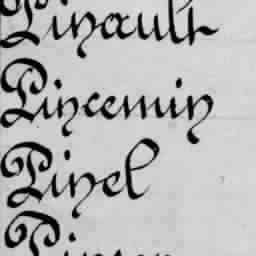 Pinault
Pincemin
Pinel